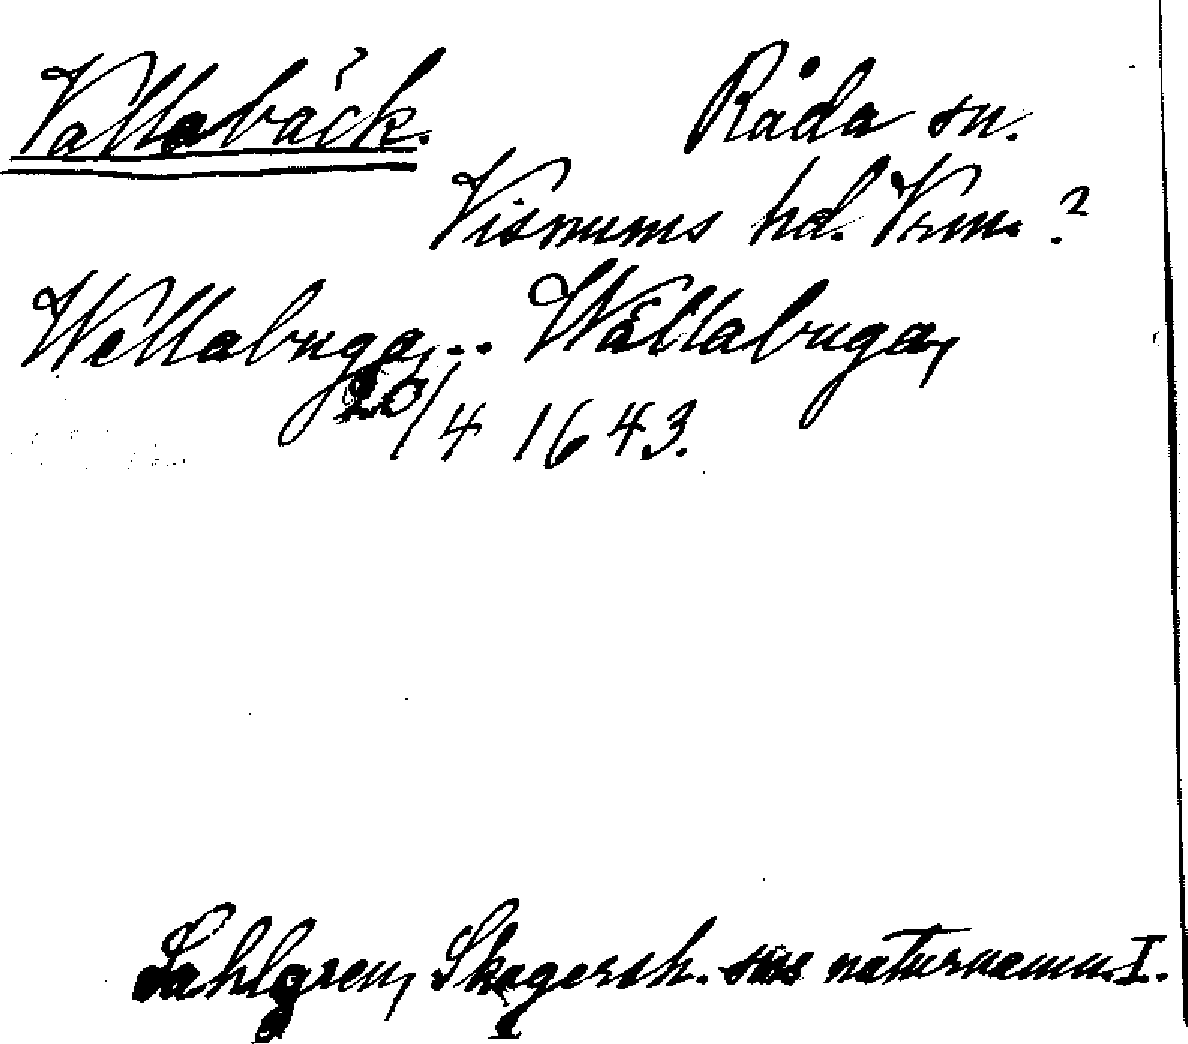 Vallabäck. Råda sn.
Visnums hd. Vrml. ?
Wellabuga,.. Wällabuga,
20/4 1643.
Sahlgren, Skagersh. sns naturnamn I.